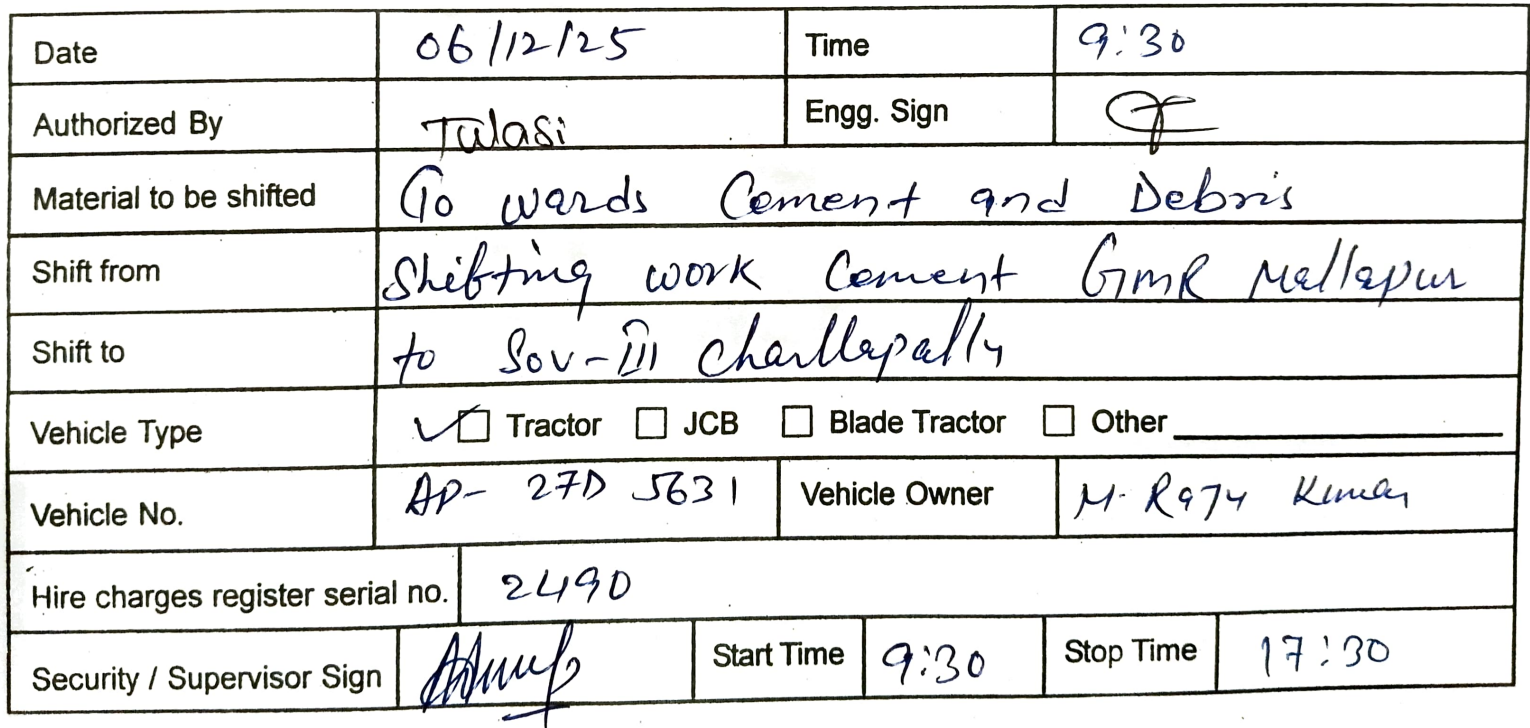 Date 06/12/25 Time 9:30
Authorized By Tulasi Engg. Sign
Material to be shifted To wards Cement and Debris
Shift from Shifting work Cement GMR Mallapur
Shift to to Sov-III charllapally
Vehicle Type Tractor JCB Blade Tractor Other
Vehicle No. AP- 27D 5631 Vehicle Owner M. Raju Kumar
Hire charges register serial no. 2490
Security / Supervisor Sign Start Time 9:30 Stop Time 17:30